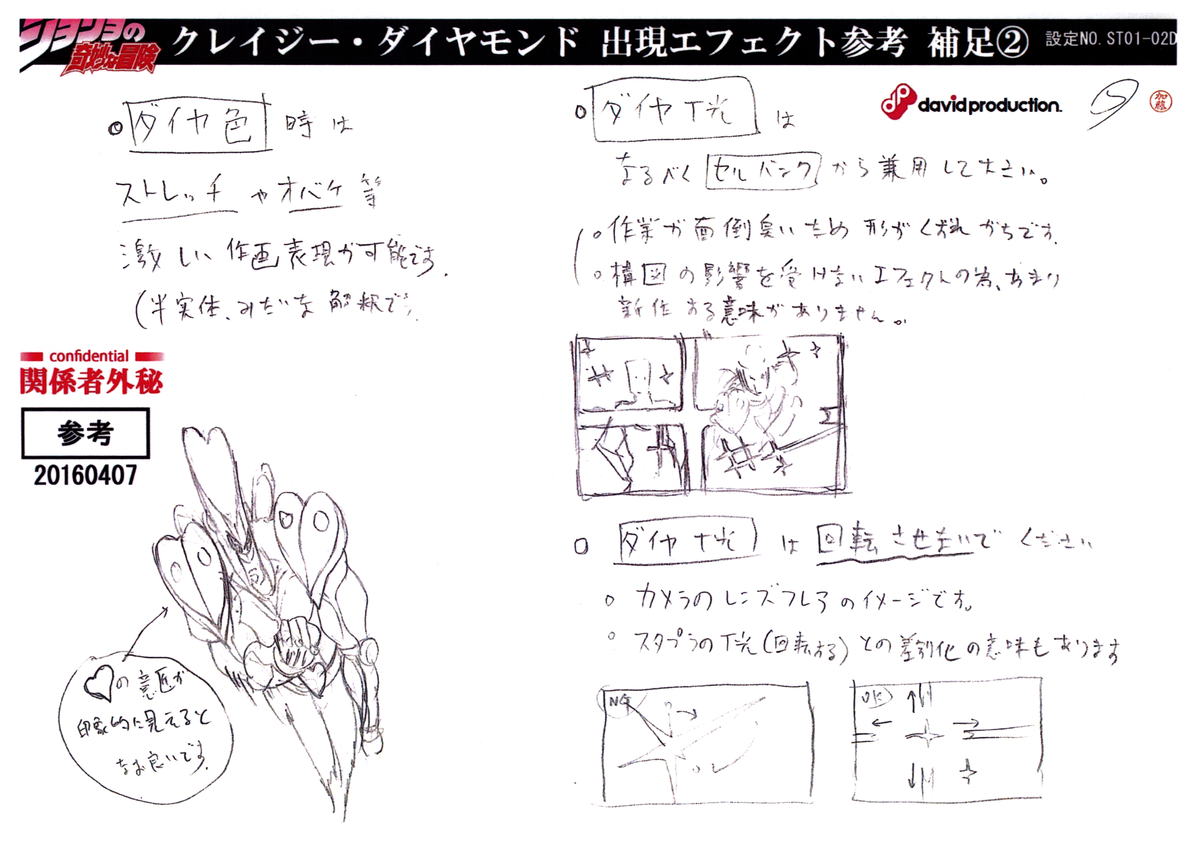 ジョジョの
奇妙な冒険
クレイジー・ダイヤモンド 出現エフェクト参考 補足②
設定NO. ST01-02D
david production.
加藤
○ダイヤ色 時は
ストレッチ や オバケ 等
激しい 作画表現が可能です.
(半実体、みたいな 解釈で)
confidential
関係者外秘
参考
20160407
♡の意匠が
印象的に見えると
なお良いです.
○ダイヤT光 は
なるべく セルバンク から 兼用して下さい。
○作業が面倒臭いため 形がくずれがちです.
○構図の影響を受けないエフェクトの為、あまり
新作する意味がありません。
○ ダイヤT光 は 回転させないで ください
○ カメラのレンズフレアのイメージです。
○ スタプラのT光(回転する)との差別化の意味もあります
NG
OK